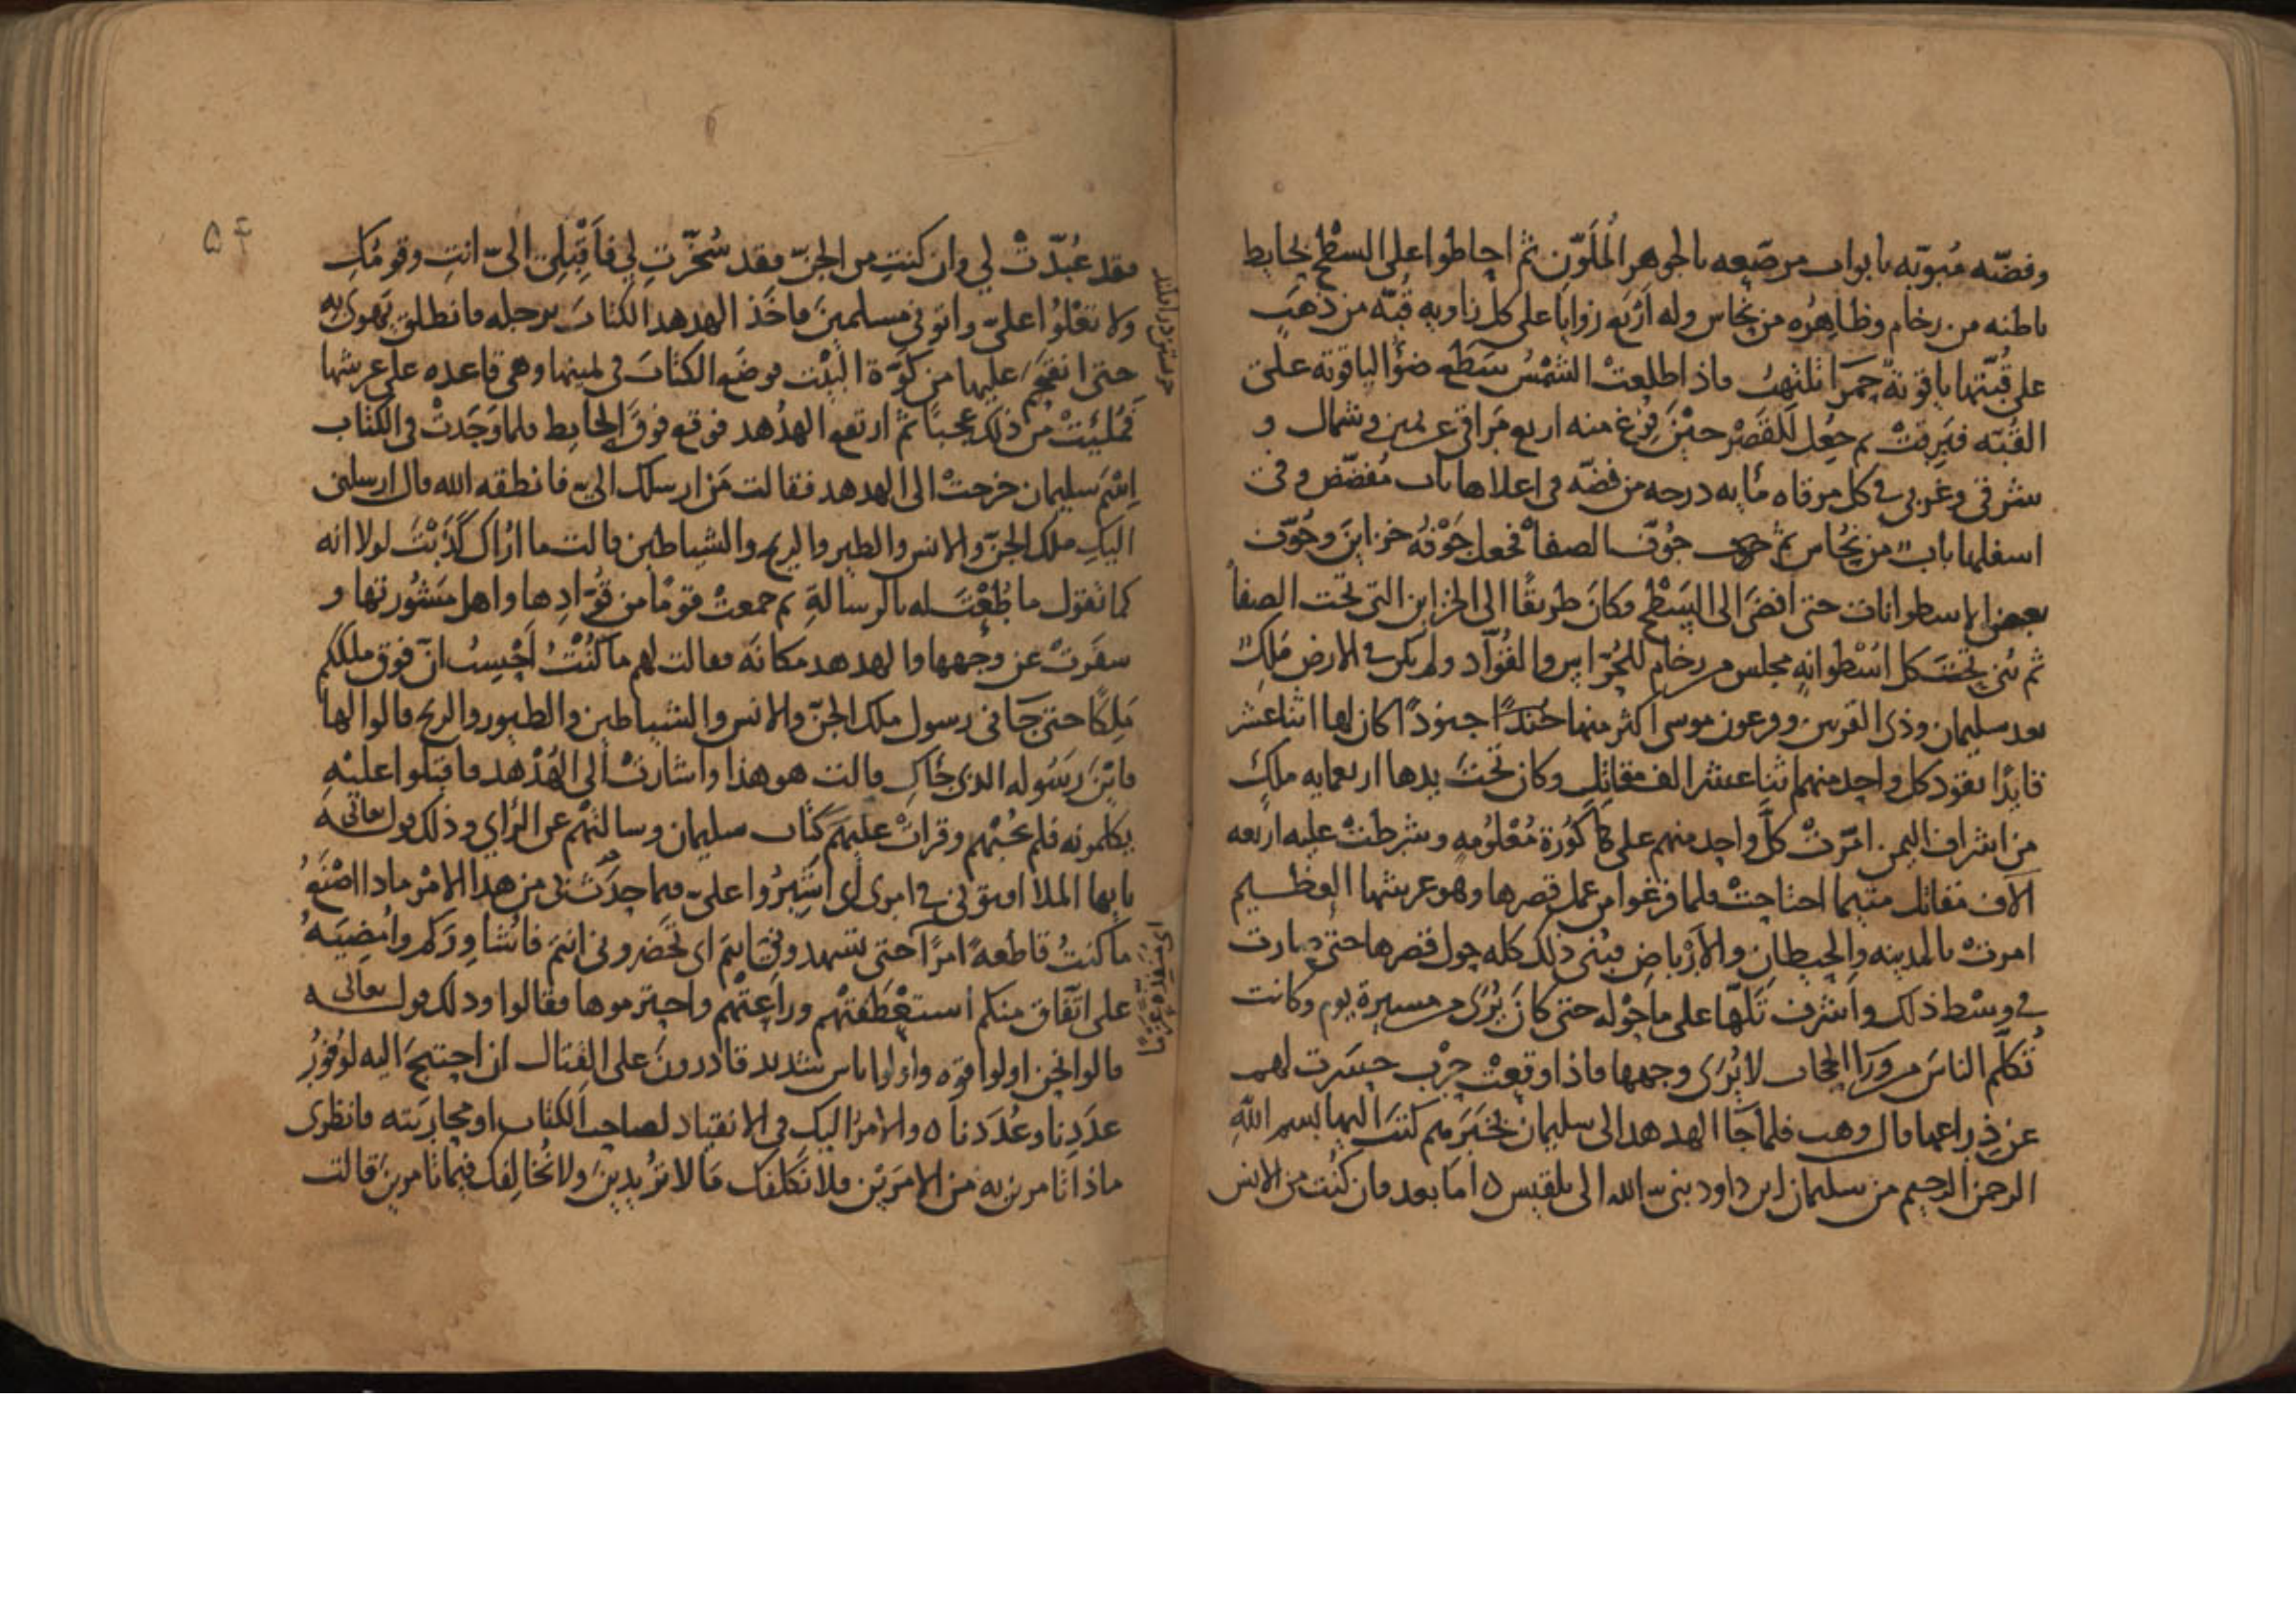 وفضّه مُبوّبه بابواب مرصّعه بالجوهر المُلَوّن ثم احاطوا على السطْح بحايط
باطنه من رخام وظاهِرُه من نحاس وله اَرْبَع زوايا على كل زاويه قُبّه من ذهَب
على قُبّتها ياقوتة حَمرا تلتهبُ فاذا طلعتْ الشمْسُ سَطَع ضوْ الياقوته على
القُبّه فبَرِقتْ ثم جعُل للقصْر حيْن فرُغ منه اربع مَراقى عن يمين وشمال و
شرقى وغربى فى كل مرقاه مأيه درجه من فضّه فى اعلاها باب مُفضّض وفى
اسفلها باب من نحُاس ثم جُوّف الصفا فجعل جَوْفُه خزاين وجُوّف
بعض الاسطوانات حتى افضَى الى السَطْح فكانَ طريقًا الى الخزاين التى تحت الصفا
ثم بُنى تحْتَ كل اسْطوانهٍ مجلس من رخام للحُرّاس والقُوّاد ولم يكن فى الارض مَلِك
بعد سليمان وذى القرنين وفرعون موسى اكثر منها جُندًا جنودًا كان لها اثنا عشر
قايدًا يقود كل واحد منهم اثنا عشر الف مقاتِل وكان تحْتَ يدها اربعمايه ملكٍ
من اشراف اليمن امّرتْ كلَّ واحد منهم على كُورَة مَعْلُومهٍ وشرطتْ عليه اربعه
الآف مقاتل متى ما احتاجتْ فلما فرغوا من عمل قصرها وهو عرشها العظيم
امرتْ بالمدينه والحِيطان والاَرْباض فبُنى ذلك كله حول قصرها حتى صارت
فى وسْط ذلك واشرف تلّها على ما حَوْله حتى كانَ يُرَى من مسيرة يوم وكانت
تُكلّم الناسَ من ورَا الحِجاب لا يُرَى وجهها فاذا وقعتْ حرْب حسَرت لهم
عن ذِراعيها قال وهب فلما جَا الهدهد الى سليمان بخبَرهم كتبَ اليها بسم اللهِ
الرحمن الرحيم من سليمان ابن داود نبىّ الله الى بلقيس ٥ اما بعد فان كنُت من الانس
٥۴
فقد عُبّدتْ لي وان كنتِ من الجنّ فقد سُخّرتِ لي فاَقْبِلى الىّ انتِ وقومُكِ
ولا تعْلُوا علىّ واتونى مسلمينَ فاخَذ الهدهد الكتابَ برجله فانطلق يهوى به
حتى انقحمَ عليها من كَوّة البَيْت فوضَع الكتابَ فى يمينها وهى قاعده على عرشها
فَمُلِيَتْ من ذلك عجبًا ثم ارتفع الهدْهد فوقع فوقَ الحايط فلما وَجَدتْ فى الكتاب
اِسْمَ سليمان خرجتْ الى الهدهد فقالت مَن ارسلك الىّ فانطقه الله قال ارسلنى
اليكِ ملك الجنّ والانس والطير والريح والشياطين قالت ما ارُاك كَذَبْتَ لولا انه
كما تقول ما طُعْتَ له بالرسالةِ ثم جمعتْ قومًا من قوّادِها واهل مَشُورتها و
سفَرتْ عن وجهها والهدهد مكانَه فقالت لهم ما كُنْتُ اَحْسِبُ انّ فوق ملككم
مَلِكًا حتى جَانى رسول ملك الجنّ والانس والشياطين والطيور والريح قالوا لها
فايْنَ رسَوله الذى جَاكِ قالت هو هذا واشارتْ الى الهُدْهد فاقبلوا عليْهِ
يكلمونه فلم يجُبْهم وقراتْ عليهم كتاب سليمان وسالتهْم عن الراي وذلك قول تعالى
يايها الملا افتونى فى امرى اى اَشِيرُوا علىّ فيما حدَثَ بى من هذا الامْر ماذا اصْنَعُ
ما كنتُ قاطعه امرًا حتى تشهدونى اى تحَضرونى انتم فاشُاورَكم وامُضِيَهُ
على اتّفاق منكم استعْطَفتْهم وراعتْهم واحترموها فقالوا وذلك قول تعالى
قالوا نحن اولوا قوه واولوا باس شديد قادرونَ على القتال ان احتيجَ اليه لوُفورُ
عدَدِنا وعُدَدنا ٥ والامرُ اليك فى الانقياد لصاحب الكتاب او محاربَته فانظرى
ماذا تامرين به من الامرَيْن فلا نكلفك ما لا تريدينَ ولا نخُالِفك فيما تامرينَ قالت